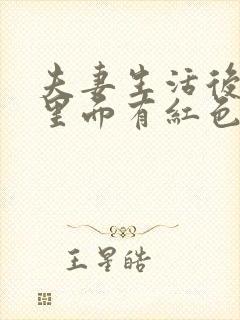 夫妻生活後
里面有紅色
王星皓